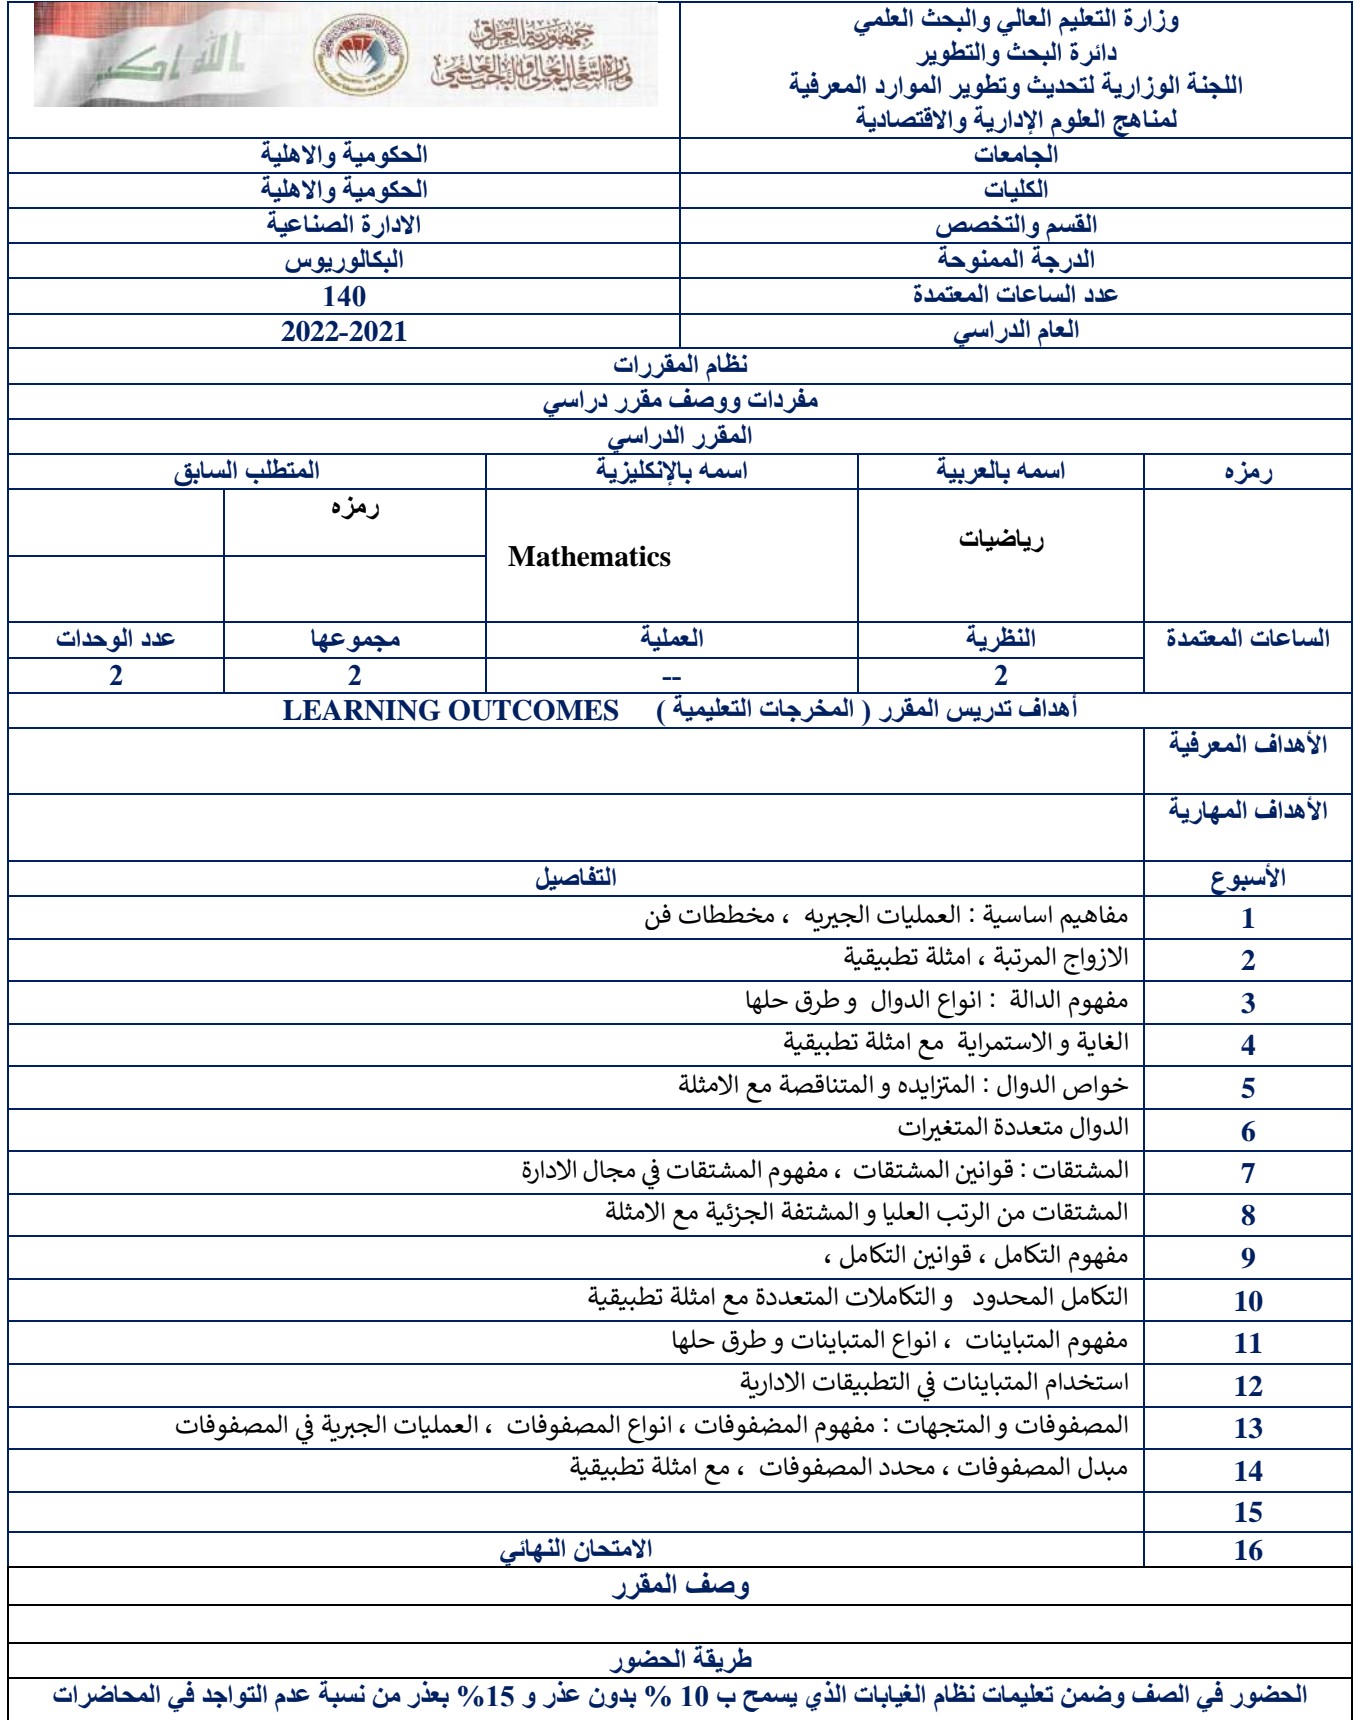 وزارة التعليم العالي والبحث العلمي
دائرة البحث والتطوير
اللجنة الوزارية لتحديث وتطوير الموارد المعرفية
لمناهج العلوم الإدارية والاقتصادية
الله اكبر
جمهورية العراق
وزارة التعليم العالي والبحث العلمي
الجامعات الحكومية والاهلية
الكليات الحكومية والاهلية
القسم والتخصص الادارة الصناعية
الدرجة الممنوحة البكالوريوس
عدد الساعات المعتمدة 140
العام الدراسي 2022-2021
نظام المقررات
مفردات ووصف مقرر دراسي
المقرر الدراسي
رمزه اسمه بالعربية اسمه بالإنكليزية المتطلب السابق
رمزه
رياضيات Mathematics
الساعات المعتمدة النظرية العملية مجموعها عدد الوحدات
2 -- 2 2
أهداف تدريس المقرر ( المخرجات التعليمية ) LEARNING OUTCOMES
الأهداف المعرفية
الأهداف المهارية
الأسبوع التفاصيل
1 مفاهيم اساسية : العمليات الجيريه ، مخططات فن
2 الازواج المرتبة ، امثلة تطبيقية
3 مفهوم الدالة : انواع الدوال و طرق حلها
4 الغاية و الاستمراية مع امثلة تطبيقية
5 خواص الدوال : المتزايده و المتناقصة مع الامثلة
6 الدوال متعددة المتغيرات
7 المشتقات : قوانين المشتقات ، مفهوم المشتقات في مجال الادارة
8 المشتقات من الرتب العليا و المشتفة الجزئية مع الامثلة
9 مفهوم التكامل ، قوانين التكامل ،
10 التكامل المحدود و التكاملات المتعددة مع امثلة تطبيقية
11 مفهوم المتباينات ، انواع المتباينات و طرق حلها
12 استخدام المتباينات في التطبيقات الادارية
13 المصفوفات و المتجهات : مفهوم المضفوفات ، انواع المصفوفات ، العمليات الجبرية في المصفوفات
14 مبدل المصفوفات ، محدد المصفوفات ، مع امثلة تطبيقية
15
16 الامتحان النهائي
وصف المقرر
طريقة الحضور
الحضور في الصف وضمن تعليمات نظام الغيابات الذي يسمح ب 10 % بدون عذر و 15% بعذر من نسبة عدم التواجد في المحاضرات